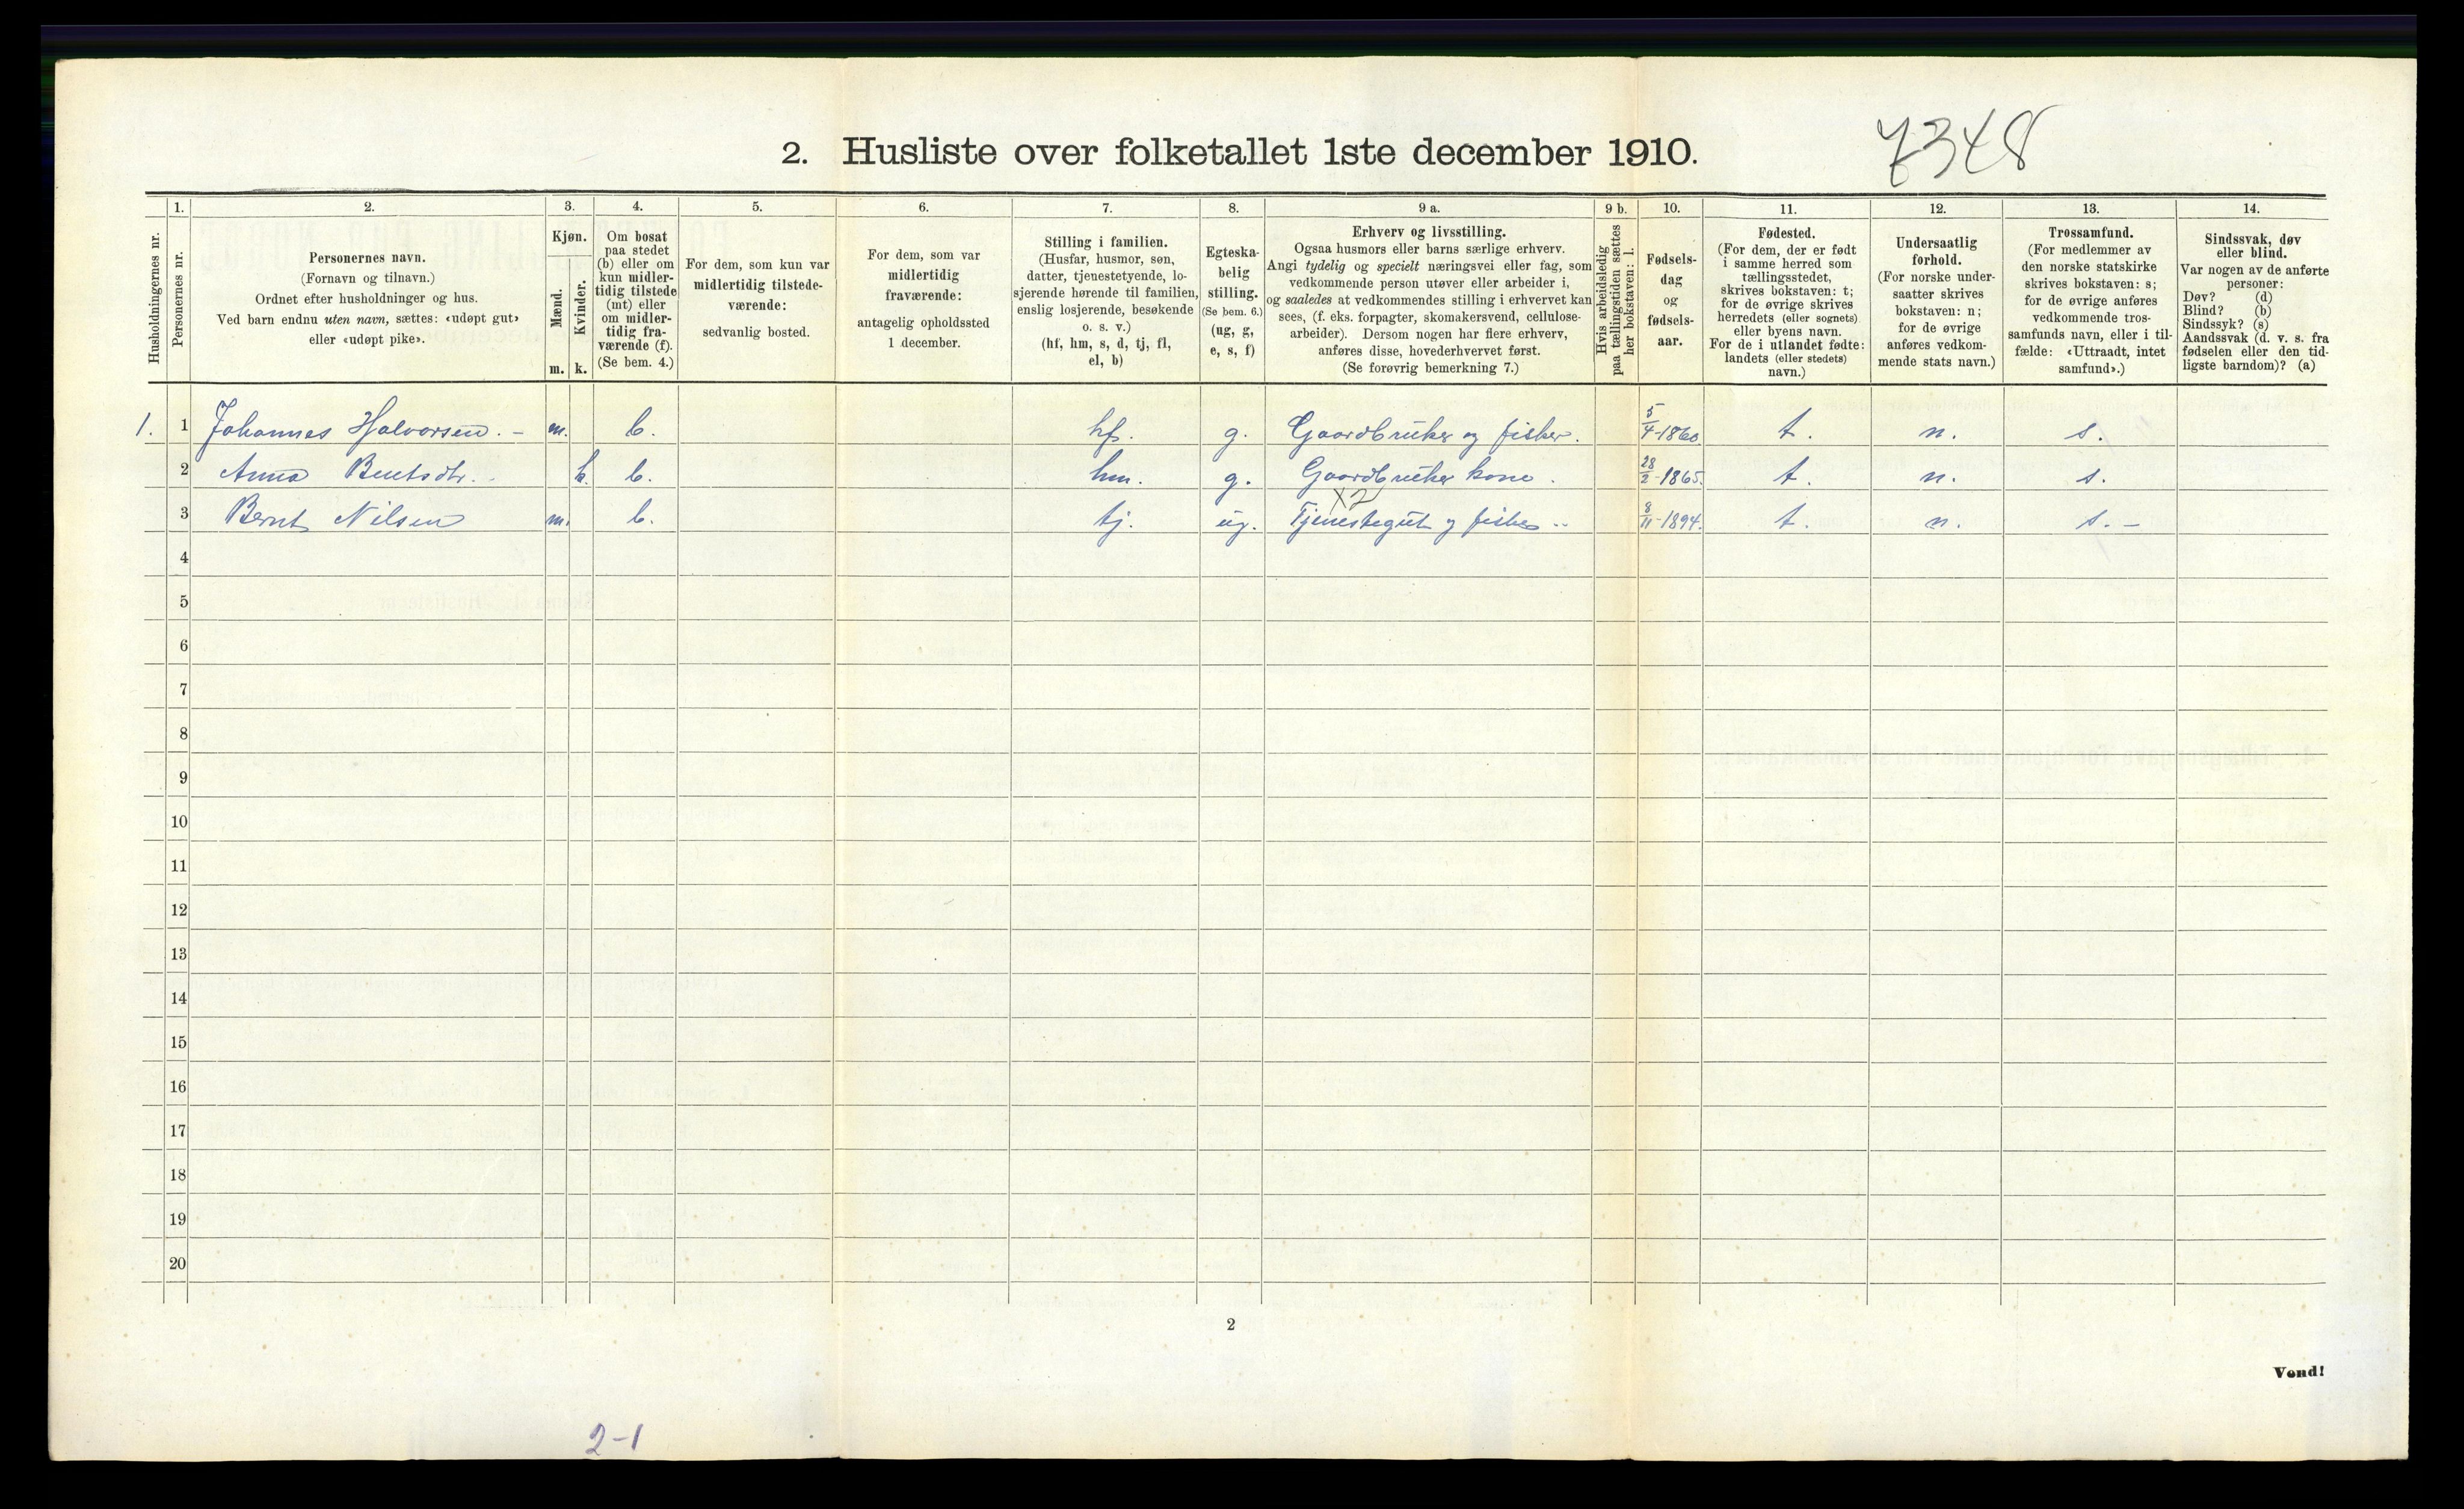 7348
2. Husliste over folketallet 1ste december 1910.
Husholdningernes nr.
1.
Personernes nr.
2.
Personernes navn.
(Fornavn og tilnavn.)
Ordnet efter husholdninger og hus.
Ved barn endnu uten navn, sættes: «udøpt gut»
eller «udøpt pike».
3.
Kjøn.
Mænd.
Kvinder.
m.
k.
4.
Om bosat
paa stedet
(b) eller om
kun midler-
tidig tilstede
(mt) eller
om midler-
tidig fra-
værende (f).
(Se bem. 4.)
5.
For dem, som kun var
midlertidig tilstede-
værende:
sedvanlig bosted.
6.
For dem, som var
midlertidig
fraværende:
antagelig opholdssted
1 december.
7.
Stilling i familien.
(Husfar, husmor, søn,
datter, tjenestetyende, lo-
sjerende hørende til familien,
enslig losjerende, besøkende
o. s. v.)
(hf, hm, s, d, tj, fl,
el, b)
8.
Egteska-
belig
stilling.
(Se bem. 6.)
(ug, g,
e, s, f)
9 a.
Erhverv og livsstilling.
Ogsaa husmors eller barns særlige erhverv.
Angi tydelig og specielt næringsvei eller fag, som
vedkommende person utøver eller arbeider i,
og saaledes at vedkommendes stilling i erhvervet kan
sees, (f. eks. forpagter, skomakersvend, cellulose-
arbeider). Dersom nogen har flere erhverv,
anføres disse, hovederhvervet først.
(Se forøvrig bemerkning 7.)
9 b.
Hvis arbeidsledig
paa tællingstiden sættes
her bokstaven: l.
10.
Fødsels-
dag
og
fødsels-
aar.
11.
Fødested.
(For dem, der er født
i samme herred som
tællingsstedet,
skrives bokstaven: t;
for de øvrige skrives
herredets (eller sognets)
eller byens navn.
For de i utlandet fødte:
landets (eller stedets)
navn.)
12.
Undersaatlig
forhold.
(For norske under-
saatter skrives
bokstaven: n;
for de øvrige
anføres vedkom-
mende stats navn.)
13.
Trossamfund.
(For medlemmer av
den norske statskirke
skrives bokstaven: s;
for de øvrige anføres
vedkommende tros-
samfunds navn, eller i til-
fælde: «Uttraadt, intet
samfund».)
14.
Sindssvak, døv
eller blind.
Var nogen av de anførte
personer:
Døv? (d)
Blind? (b)
Sindssyk? (s)
Aandssvak (d. v. s. fra
fødselen eller den tid-
ligste barndom)? (a)
1. 1 Johannes Halvorsen. - m. b. hf. g. Gaardbruker og fisker. 5/4-1860. t. n. s.
2 Anna Bentsdtr. k. b. hm. g. Gaardbruker kone. 28/2-1865. t. n. s.
X2
3 Bernt Nilsen m. b. tj. ug. Tjenestegut og fisker 8/11-1894. t. n. s. -
4
5
6
7
8
9
10
11
12
13
14
15
16
17
18
19
20
2
Vend!
2-1